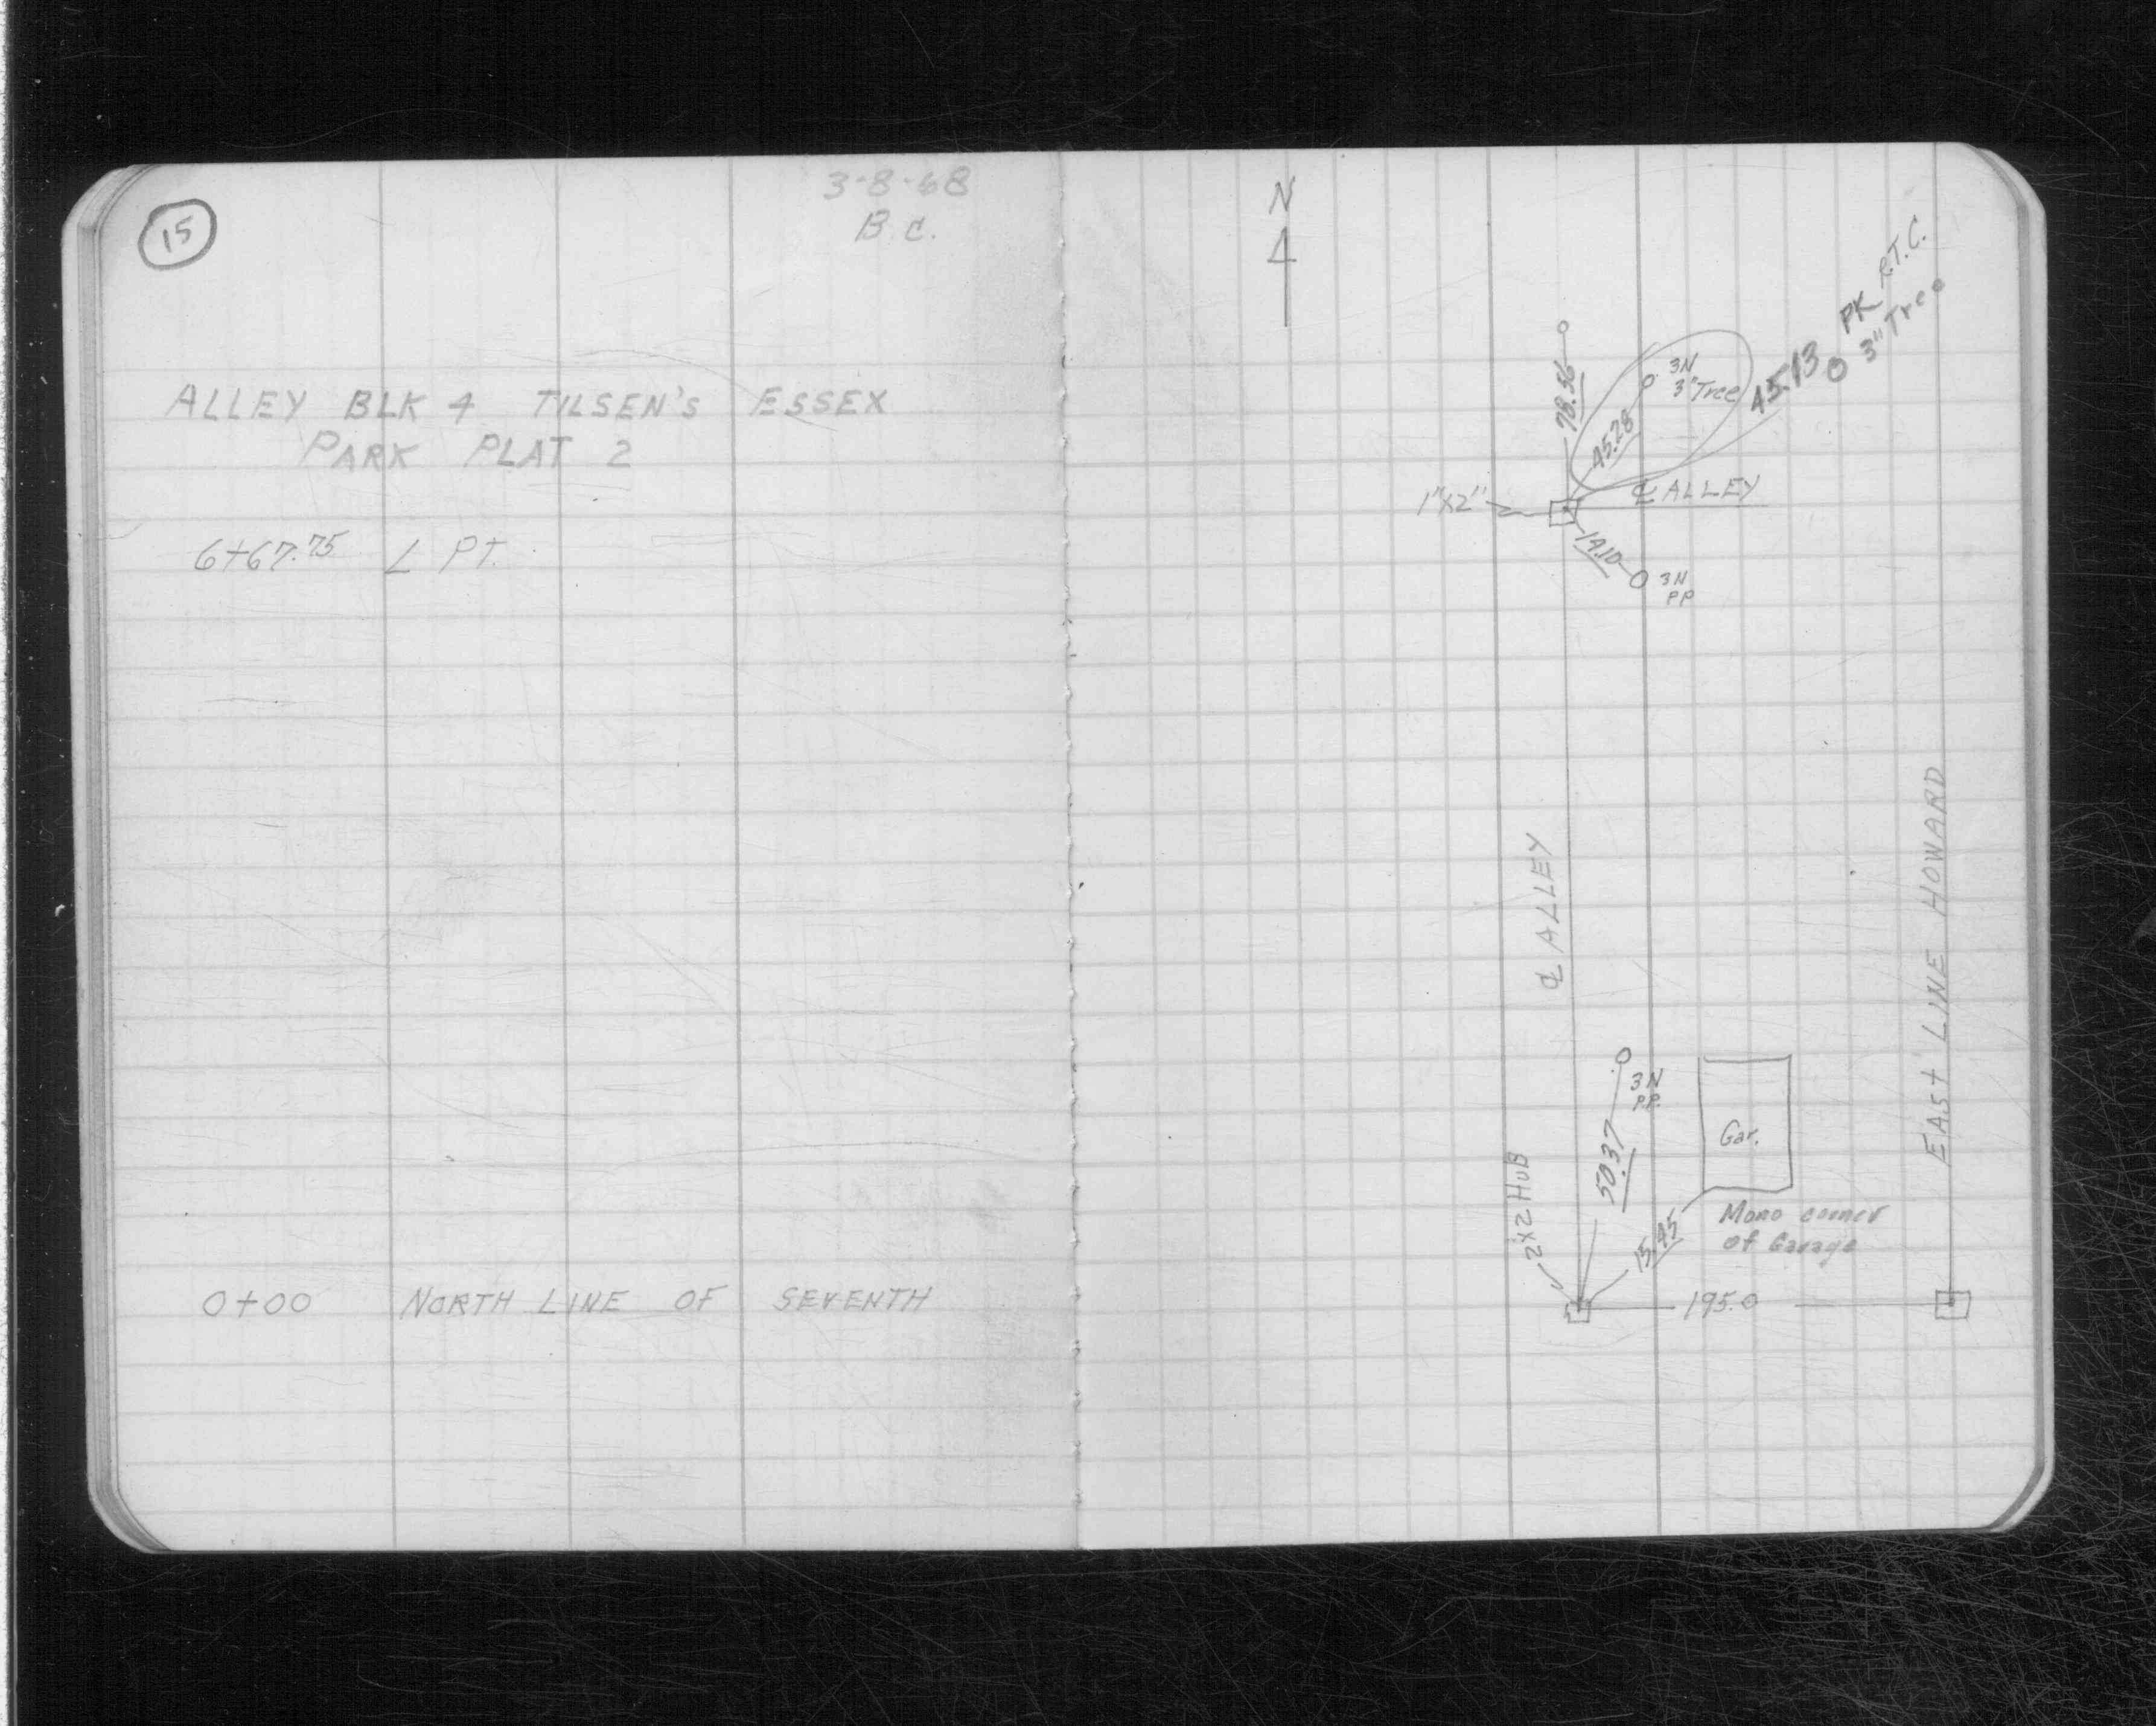 15
3-8-68
B.C.
ALLEY BLK 4 TILSEN'S ESSEX
PARK PLAT 2
6+67.75 L PT.
0+00 NORTH LINE OF SEVENTH
N
PK R.T.C.
45.13 3" Tree
78.56
3N
3" Tree
45.28
1"X2"
℄ ALLEY
14.10
3N
PP
℄ ALLEY
EAST LINE HOWARD
3N
P.P.
50.37
Gar.
2X2 HUB
15.45
Mono corner
of Garage
195.0